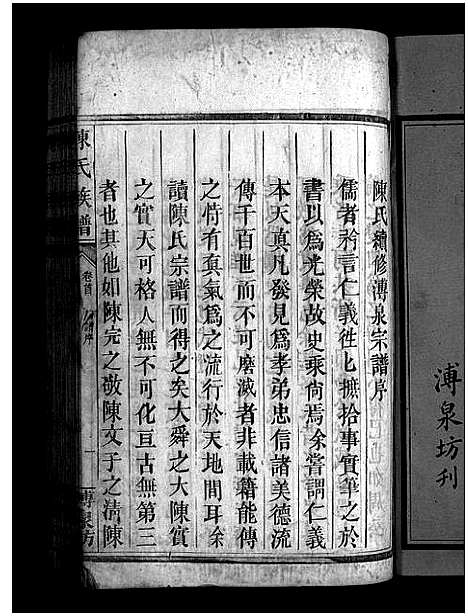 溥泉坊刋
陳氏續修溥泉宗譜序
儒者矜言仁義徃匕摭拾事實筆之於
書以爲光榮故史乘尚焉余嘗謂仁義
本天真凡發見爲孝弟忠信諸美德流
傳千百世而不可磨滅者非載籍能傳
之恃有真氣爲之流行於天地間耳余
讀陳氏宗譜而得之矣大舜之大陳實
之實天可格人無不可化亘古無第三
者也其他如陳完之敬陳文子之清陳
陳氏族譜
卷首
序
一
溥泉坊